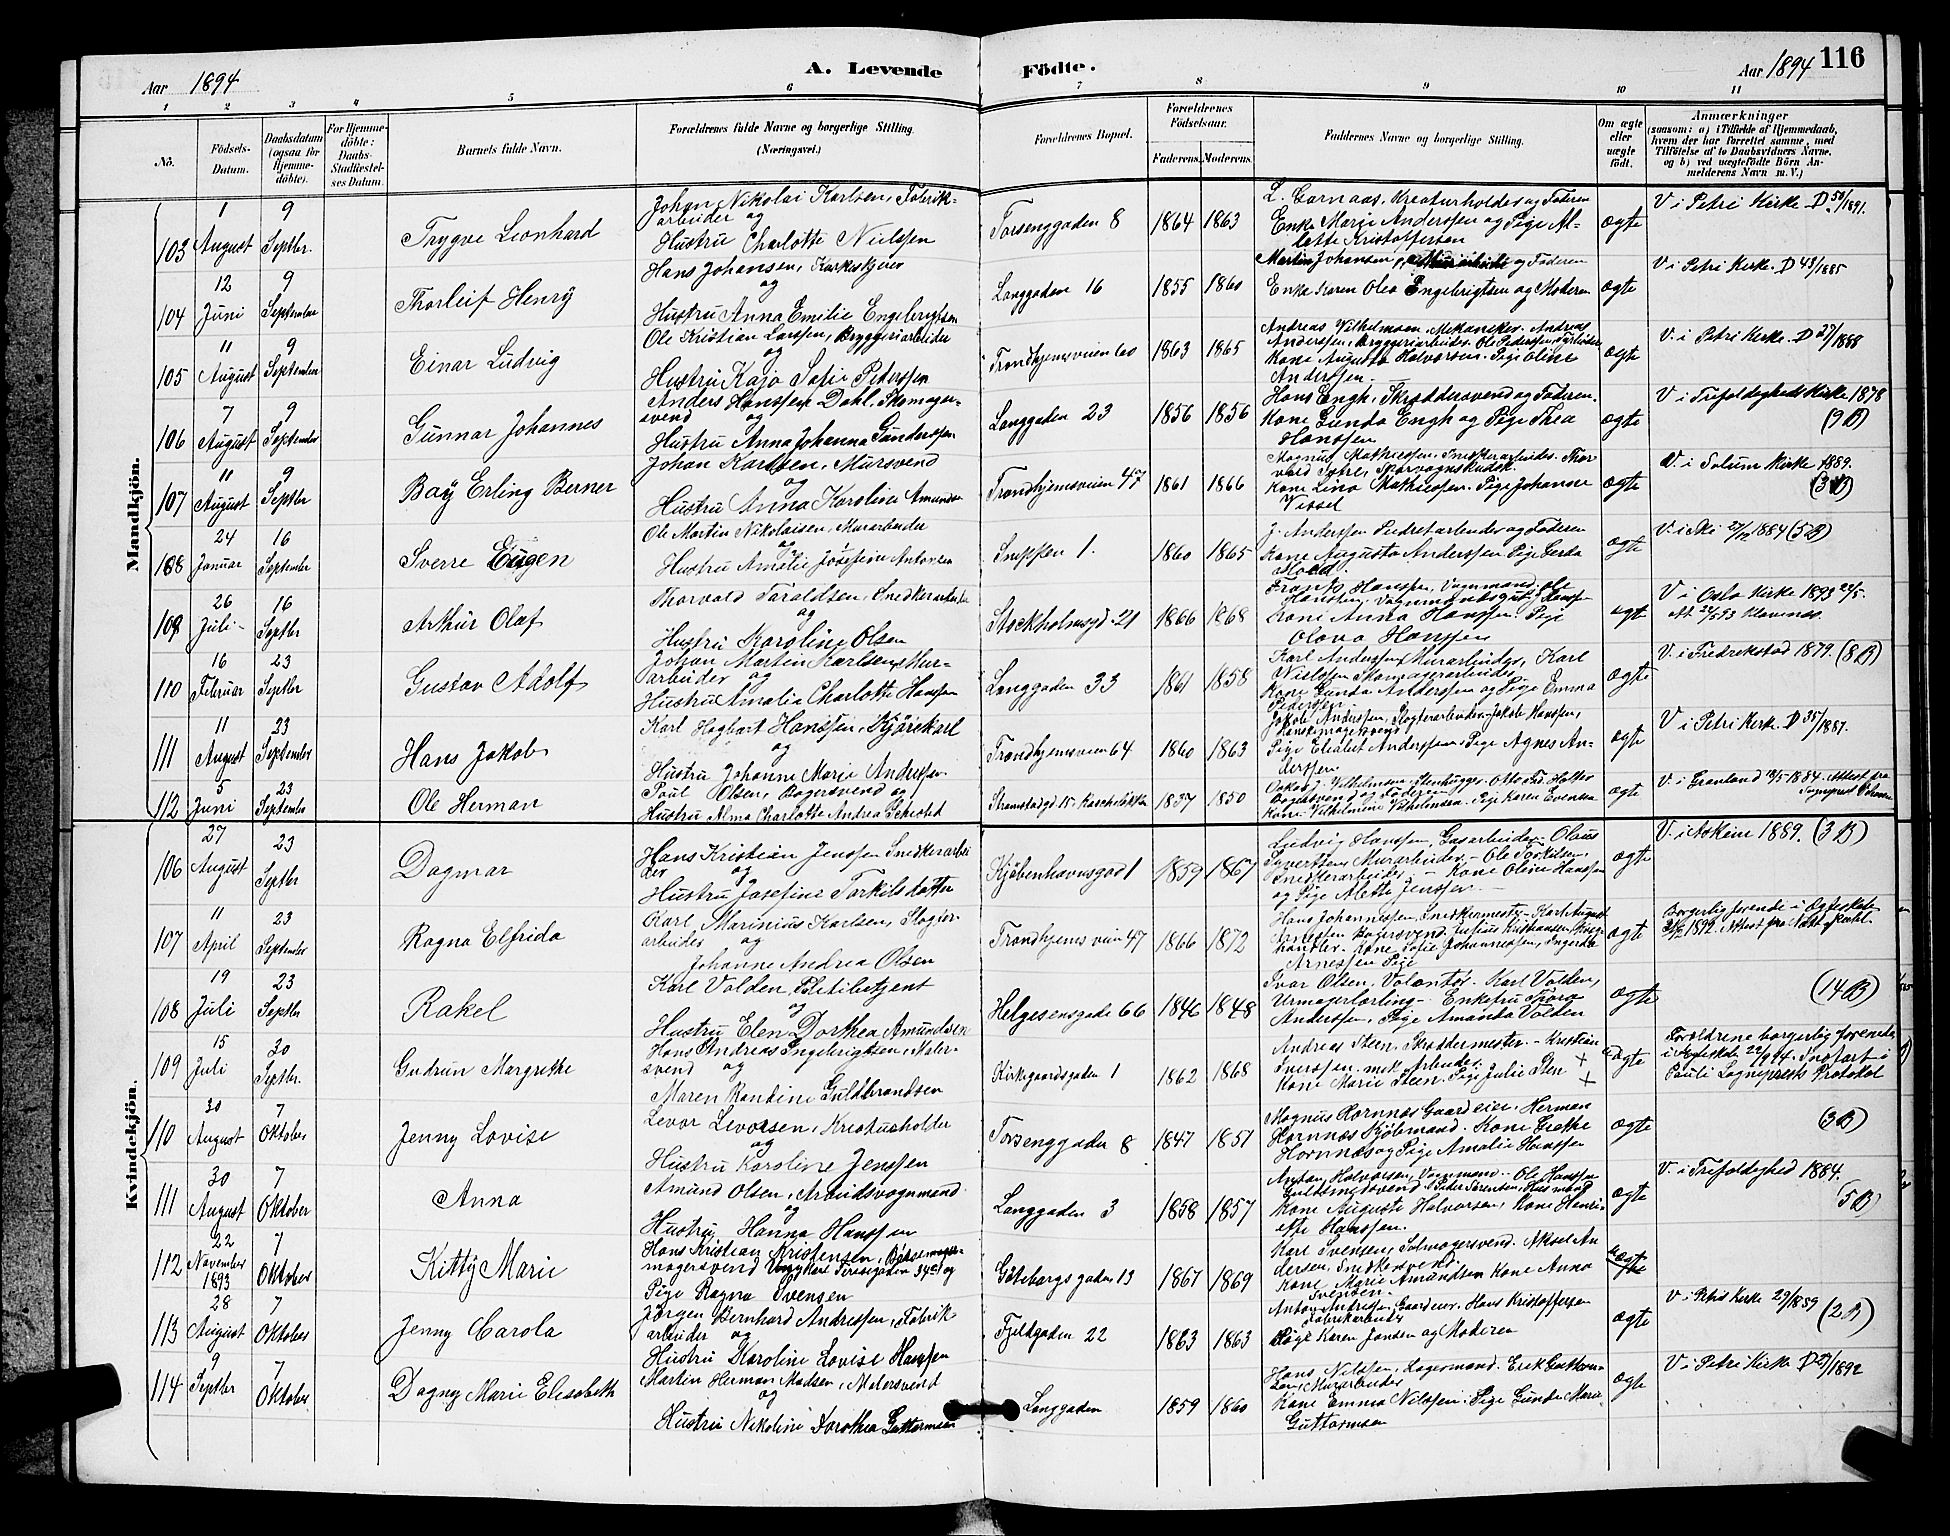 Aar 1894
A. Levende Födte.
Aar 1894 116
1 2 3 4 5 6 7 8 9 10 11
No.
Födsels-Datum.
Daabsdatum (ogsaa for Hjemme-döbte).
For Hjemme-döbte: Daabs-Stadfæstel-ses Datum.
Barnets fulde Navn.
Forældrenes fulde Navne og borgerlige Stilling.
(Næringsvei.)
Forældrenes Bopæl.
Forældrenes Födselsaar.
Faderens. Moderens.
Faddernes Navne og borgerlige Stilling.
Om ægte eller uægte födt.
Anmærkninger
(saasom: a) i Tilfælde af Hjemmedaab, hvem der har forrettet samme, med Tilföielse af to Daabsvidners Navne, og b) ved uægtefödte Börn An-melderens Navn m. V.)
Mandkjön.
103 1 August 9 Septbr. Trygve Leonhard
Johan Nikolai Karlsen, Fabrik-
arbeider og
Hustru Charlotte Nielsen
Torsenggaden 8 1864 1863
L. Garnaas, Kreaturholder og Faderen
Enke Marie Anderssen og Pige Al-
lette Kristoffersen
ægte V i Petri Kirke. D 50/1891.
104 12 Juni 9 September Thorleif Henry
Hans Johansen,
og
Hustru Anna Emilie Engebrigtsen
Langgaden 16 1855 1860
Martin Johansen, og Faderen
Enke Karen Olea Engebrigtsen og Moderen
ægte V i Petri Kirke. D 48/1885
105 11 August 9 September Einar Ludvig
Ole Kristian Larssen, Bryggeriarbeider
og
Hustru Kaja Sofie Pederssen
Trondhjemsveien 60 1863 1865
Andreas Vilhelmsen, Mekaniker. Andreas
Anderssen, Bryggeriarbeider. Ole Pederssen,
Kone Augusta Halvorsen. Pige Oline
Anderssen.
ægte V. i Petri Kirke. D 27/1888
106 7 August 9 September Gunnar Johannes
Anders Hanssen Dahl, Skomager-
svend og
Hustru Anna Johanna Gunderssen
Langgaden 23 1856 1856
Hans Engh, Skræddersvend og Faderen.
Kone Gunda Engh og Pige Thea
Hanssen
ægte V i Trefoldigheds Kirke 1878
(9 B)
107 11 August 9 Septbr Baÿ Erling Berner
Johan Karlsen, Mursvend
og
Hustru Anna Karoline Amundsen
Trondhjemsveien 47 1861 1866
Magnus Mathiessen, Snedkerarbeider. Thor-
vald Sætre, Sporvognskudsk.
Kone Lina Mathiessen. Pige Johanne
Vissel
ægte V. i Solum Kirke 1889.
(3 B)
108 24 Januar 16 September Sverre Eugen
Ole Martin Nikolaisen, Murarbeider
og
Hustru Amalie Josefine Antonsen
Snippen 1. 1860 1865
J. Anderssen og Faderen
Kone Augusta Anderssen. Pige Gerda
Hoel.
ægte V. i Ski 27/12 1884 (5 B)
109 26 Juli 16 Septbr Arthur Olaf
Thorvald Taraldsen, Snedkerarbeider
og
Hustru Karoline Olsen
Stockholmsgd. 21 1866 1868
Frants Hanssen, Vognmand. Ole
Hanssen,
Kone Anna Hanssen. Pige
Olava Hanssen
ægt V i Oslo Kirke 1893 22/5.
110 16 Februar 23 Septbr Gustav Adolf
Johan Martin Karlsen, Mur-
arbeider og
Hustru Amalia Charlotte Hanssen
Langgaden 33 1861 1858
Karl Anderssen, Murarbeider, Karl
Nielssen, Skomagerarbeider,
Kone Gunda Anderssen og Pige Emma
Pederssen
ægte V. i Fredrikstad 1879. (8 B)
111 11 August 23 September Hans Jakob
Karl Hagbart Hanssen, Kjørekarl
og
Hustru Johanne Marie Anderssen
Trondhjemsveien 64 1860 1863
Jakob Anderssen, Jakob Hanssen,
Hanskemagersvend
Pige Elisabet Anderssen. Pige Agnes An-
derssen
ægte V i Petri Kirke. D 35/1887.
112 5 Juni 23 September Ole Herman
Paul Olsen, Bagersvend og
Hustru Alma Charlotte Andrea Schested
Strømstadgd 15 1857 1850
Vilhelmsen, Stenhugger.
Bagersvend og Faderen
Kone Vilhelmine Vilhelmsen. Pige Karen Evensen
ægte V i Grønland 13/5 1884. Attest fra
Kvindekjön.
106 27 August 23 Septbr Dagmar
Hans Kristian Jenssen Snedkerarbei-
der og
Hustru Josefine Torkilsdatter
Kjøbenhavnsgad 1 1859 1867
Ludvig Hanssen, Gasarbeider. Olaus
Syvertsen, Murarbeider. Ole Torkilsen,
Snedkerarbeider. Kone Oline Hanssen
og Pige Alette Jenssen.
ægte V. i Askim 1889. (3 B)
107 11 April 23 September Ragna Elfrida
Karl Marinius Karlsen, Slagter-
arbeider og
Johanne Andrea Olsen
Trondhjemsveien 47 1866 1872
Hans Johannessen, Snedkermester. Karl August
Arnessen Bagersvend. Julius Kristiansen
handler. Kone Sofie Johannessen, Ingerda
Arnessen Pige
ægte Borgerlig forende i Ægteskab
1892. Attest fra
108 19 Juli 23 Septbr Rakel
Karl Volden,
og
Hustru Elen Dorthea Amundsen
Helgesensgade 66 1846 1848
Ivar Olsen, Volontør. Karl Volden,
Urmagerlærling. Enkefru Thora
Anderssen, Pige Amanda Volden
ægte (14 B)
109 15 Juli 30 Septbr. Gudrun Margrethe
Hans Andreas Engebrigtsen, Maler-
svend og
Maren Randine Guldbrandsen
Kirkegaardsgaden 1 1862 1868
Andreas Steen, Skræddermester. Kristian
Iverssen, mek. Arbeider.
Kone Marie Steen. Pige Julie Sten
ægte Forældrene borgerlig forende
i Ægteskab 22/9 94. Indført i
Pauli Sogneprests Protokol
110 30 August 7 Oktober Jenny Lovise
Levor Levorsen, Kreaturholder
og
Hustru Karoline Jenssen
Torsenggaden 8 1847 1851
Magnus Hornnæs Gaardeier. Herman
Hornnæs Kjøbmand. Kone Grethe
Hornnæs og Pige Amalie Hanssen
ægte (3 B)
111 30 August 7 Oktober Anna
Amund Olsen, Arbeidsvognmand.
og
Hustru Hanna Hanssen
Langgaden 3 1858 1857
Anton Halvorsen, Vognmand. Ole Hanssen
Guldsmedsvend. Peder Sørensen, Husmand
Kone Auguste Halvorsen, Kone Henri-
ette Hanssen.
ægte V. i Trefoldighed 1884.
(5 B)
112 22 November 1893 7 Oktober Kitty Marie
Hans Kristian Kristensen, Bøkse-
magersvend Ungkarl
Pige Ragna Svensen
Göteborgsgaden 13 1867 1869
Karl Svensen, Salmagersvend. Aksel An-
dersen, Snedkersvend.
Kone Marie Amundsen Kone Anna
Svensen.
uægte
113 28 August 7 Oktober Jenny Carola
Jørgen Bernhard Andreassen, Fabrik-
arbeider og
Hustru Karoline Lovise Hanssen
Fjeldgaden 22 1863 1863
Anton Andreassen, Gaardeier. Hans Kristoffersen
Fabrikarbeider
Pige Karen Jansen og Moderen
ægte V i Petri Kirke 29/1889 (2 B)
114 9 Septbr 7 Oktober Dagny Marie Elisabeth
Martin Herman Madsen, Malersvend
og
Hustru Nikoline Dorothea Guttormsen
Langgaden 1859 1860
Hans Nilssen, Lagermand. Erik Guttorm-
sen, Murarbeider
Kone Emma Nilssen. Pige Gunda Marie
Guttormsen
ægte V i Petri Kirke D 27/1892